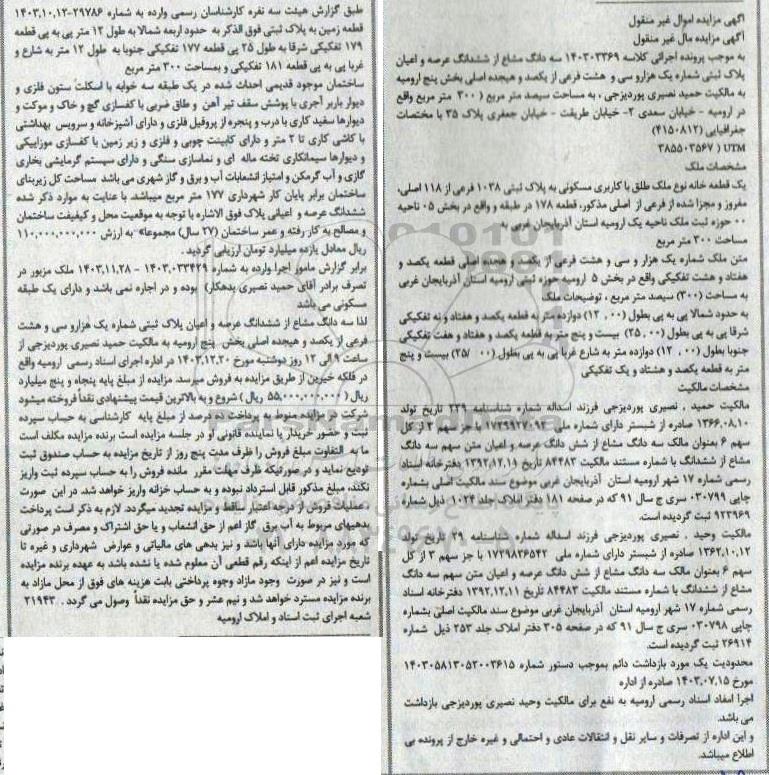 آگهی مزایده اموال غیر منقول
آگهی مزایده مال غیر منقول
به موجب پرونده اجرائی کلاسه ۱۴۰۳۰۳۳۶۹ سه دانگ مشاع از ششدانگ عرصه و اعیان
پلاک ثبتی شماره یک هزارو سی و هشت فرعی از یکصد و هیجده اصلی بخش پنج ارومیه
به مالکیت حمید نصیری پوردیزجی ، به مساحت سیصد متر مربع ( ۳۰۰ متر مربع واقع
در ارومیه - خیابان سعدی ۲- خیابان طریقت - خیابان جعفری پلاک ۳۵ با مختصات
جغرافیایی (۴۱۵۰۸۱۲)
UTM ) ۳۸۵۵۰۳۵۶۷
مشخصات ملک
یک قطعه خانه نوع ملک طلق با کاربری مسکونی به پلاک ثبتی ۱۰۳۸ فرعی از ۱۱۸ اصلی،
مفروز و مجزا شده از فرعی از اصلی مذکور، قطعه ۱۷۸ در طبقه و واقع در بخش ۰۵ ناحیه
۰۰ حوزه ثبت ملک ناحیه یک ارومیه استان آذربایجان غربی به
مساحت ۳۰۰ متر مربع
متن ملک شماره یک هزار و سی و هشت فرعی از یکصد و هجده اصلی قطعه یکصد و
هفتاد و هشت تفکیکی واقع در بخش ۵ ارومیه حوزه ثبتی ارومیه استان آذربایجان غربی
به مساحت (۳۰۰) سیصد متر مربع ، توضیحات ملک
به حدود شمالا پی به پی بطول (۰۰ , ۱۲) دوازده متر به قطعه یکصد و هفتاد و نه تفکیکی
شرقا پی به پی بطول (۰۰ , ۲۵) بیست و پنج متر به قطعه یکصد و هفتاد و هفت تفکیکی
جنوبا بطول (۰۰ , ۱۲) دوازده متر به شارع غربا پی به پی بطول (۰۰ /۲۵) بیست و پنج
متر به قطعه یکصد و هشتاد و یک تفکیکی
مشخصات مالکیت
مالکیت حمید , نصیری پوردیزجی فرزند اسداله شماره شناسنامه ۲۳۹ تاریخ تولد
۱۳۶۶,۰۸,۱۰ صادره از شبستر دارای شماره ملی ۱۷۳۹۹۲۷۰۹۳ با جز سهم ۳ از کل
سهم ۶ بعنوان مالک سه دانگ مشاع از شش دانگ عرصه و اعیان متن سهم سه دانگ
مشاع از ششدانگ با شماره مستند مالکیت ۸۴۴۸۳ تاریخ ۱۳۹۲,۱۲,۱۱ دفترخانه اسناد
رسمی شماره ۱۷ شهر ارومیه استان آذربایجان غربی موضوع سند مالکیت اصلی بشماره
چاپی ۰۳۰۷۹۹ سری ج سال ۹۱ که در صفحه ۱۸۱ دفتر املاک جلد ۱۰۲۴ ذیل شماره
۹۲۳۹۶۹ ثبت گردیده است.
مالکیت وحید , نصیری پوردیزجی فرزند اسداله شماره شناسنامه ۲۹ تاریخ تولد
۱۳۶۲,۱۰,۱۲ صادره از شبستر دارای شماره ملی ۱۷۲۹۸۲۶۵۴۲ با جز سهم ۳ از کل
سهم ۶ بعنوان مالک سه دانگ مشاع از شش دانگ عرصه و اعیان متن سهم سه دانگ
مشاع از ششدانگ با شماره مستند مالکیت ۸۴۴۸۳ تاریخ ۱۳۹۲,۱۲,۱۱ دفترخانه اسناد
رسمی شماره ۱۷ شهر ارومیه استان آذربایجان غربی موضوع سند مالکیت اصلی بشماره
چاپی ۰۳۰۷۹۸ سری ج سال ۹۱ که در صفحه ۳۰۵ دفتر املاک جلد ۲۵۳ ذیل شماره
۲۶۹۱۴ ثبت گردیده است.
محدودیت یک مورد بازداشت دائم بموجب دستور شماره ۱۴۰۳۰۵۸۱۳۰۵۲۰۰۳۶۱۵
مورخ ۱۴۰۳,۰۷,۱۵ صادره از اداره
اجرا امفاد اسناد رسمی ارومیه به نفع برای مالکیت وحید نصیری پوردیزجی بازداشت
می باشد.
و این اداره از تصرفات و سایر نقل و انتقالات عادی و احتمالی و غیره خارج از پرونده بی
اطلاع میباشد.
طبق گزارش هیئت سه نفره کارشناسان رسمی وارده به شماره ۲۹۷۸۶-۱۴۰۳,۱۰,۱۳
قطعه زمین به پلاک ثبتی فوق الذکر به حدود اربعه شمالا به طول ۱۲ متر پی به پی قطعه
۱۷۹ تفکیکی شرقا به طول ۲۵ پی قطعه ۱۷۷ تفکیکی جنوبا به طول ۱۲ متر به شارع و
غربا پی به پی به قطعه ۱۸۱ تفکیکی و بمساحت ۳۰۰ متر مربع
ساختمان موجود قدیمی احداث شده در یک طبقه سه خوابه با اسکلت ستون فلزی و
دیوار باربر آجری با پوشش سقف تیر آهن و طاق ضربی با کفسازی گچ و خاک و موکت و
دیوارها سفید کاری با درب و پنجره از پروفیل فلزی و دارای آشپزخانه و سرویس بهداشتی
با کاشی کاری تا ۲ متر و دارای کابینت چوبی و فلزی و زیر زمین با کفسازی موزاییکی
و دیوارها سیمانکاری تخته ماله ای و نماسازی سنگی و دارای سیستم گرمایشی بخاری
گازی و آب گرمکن و امتیاز انشعابات آب و برق و گاز شهری می باشد مساحت کل زیربنای
ساختمان برابر پایان کار شهرداری ۱۷۷ متر مربع میباشد. با عنایت به موارد ذکر شده
ششدانگ عرصه و اعیانی پلاک فوق الاشاره با توجه به موقعیت محل و کیفیفت ساختمان
و مصالح به کار رفته و عمر ساختمان (۲۷ سال) مجموعا» به ارزش ۱۱۰,۰۰۰,۰۰۰,۰۰۰
ریال معادل یازده میلیارد تومان ارزیابی گردید .
برابر گزارش مامور اجرا وارده به شماره ۱۴۰۳,۰۳۳۴۲۹ - ۱۴۰۳,۱۱,۲۸ ملک مزبور در
تصرف برادر آقای حمید نصیری بدهکار) بوده و در اجاره نمی باشد و دارای یک طبقه
مسکونی می باشد
لذا سه دانگ مشاع از ششدانگ عرصه و اعیان پلاک ثبتی شماره یک هزارو سی و هشت
فرعی از یکصد و هیجده اصلی بخش پنج ارومیه به مالکیت حمید نصیری پوردیزجی از
ساعت ۹ الی ۱۲ روز دوشنبه مورخ ۱۴۰۳,۱۲,۲۰ در اداره اجرای اسناد رسمی ارومیه واقع
در فلکه خیرین از طریق مزایده به فروش میرسد. مزایده از مبلغ پایه پنجاه و پنج میلیارد
ریال ( ۵۵,۰۰۰,۰۰۰,۰۰۰ ریال ) شروع و به بالاترین قیمت پیشنهادی نقداً فروخته میشود
شرکت در مزایده منوط به پرداخت ده درصد از مبلغ پایه کارشناسی به حساب سپرده
ثبت و حضور خریدار یا نماینده قانونی او در جلسه مزایده است برنده مزایده مکلف است
ما به التفاوت مبلغ فروش را ظرف مدت پنج روز از تاریخ مزایده به حساب صندوق ثبت
تودیع نماید و در صورتیکه ظرف مهلت مقرر مانده فروش را به حساب سپرده ثبت واریز
نکند، مبلغ مذکور قابل استرداد نبوده و به حساب خزانه واریز خواهد شد. در این صورت
، عملیات فروش از درجه اعتبار ساقط و مزایده تجدید میگردد. لازم به ذکر است پرداخت
بدهیهای مربوط به آب برق گاز اعم از حق انشعاب و یا حق اشتراک و مصرف در صورتی
که مورد مزایده دارای آنها باشد و نیز بدهی های مالیاتی و عوارض شهرداری و غیره تا
تاریخ مزایده اعم از اینکه رقم قطعی آن معلوم شده یا نشده باشد به عهده برنده مزایده
است و نیز در صورت وجود مازاد وجوه پرداختی بابت هزینه های فوق از محل مازاد به
برنده مزایده مسترد خواهد شد و نیم عشر و حق مزایده نقداً وصول می گردد . ۳۱۹۴۳
شعبه اجرای ثبت اسناد و املاک ارومیه